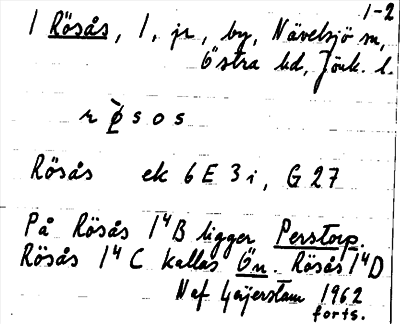 1-2
1 Rösås, 1, jr, by, Nävelsjö sn,
Östra hd, Jönk. l.
r ø̀ s o s
Rösås ek 6 E 3 i, G 27
På Rösås 1⁴B ligger Perstorp.
Rösås 1⁴ C kallas Ön. Rösås 1⁴D
N af Geijerstam 1962
forts.